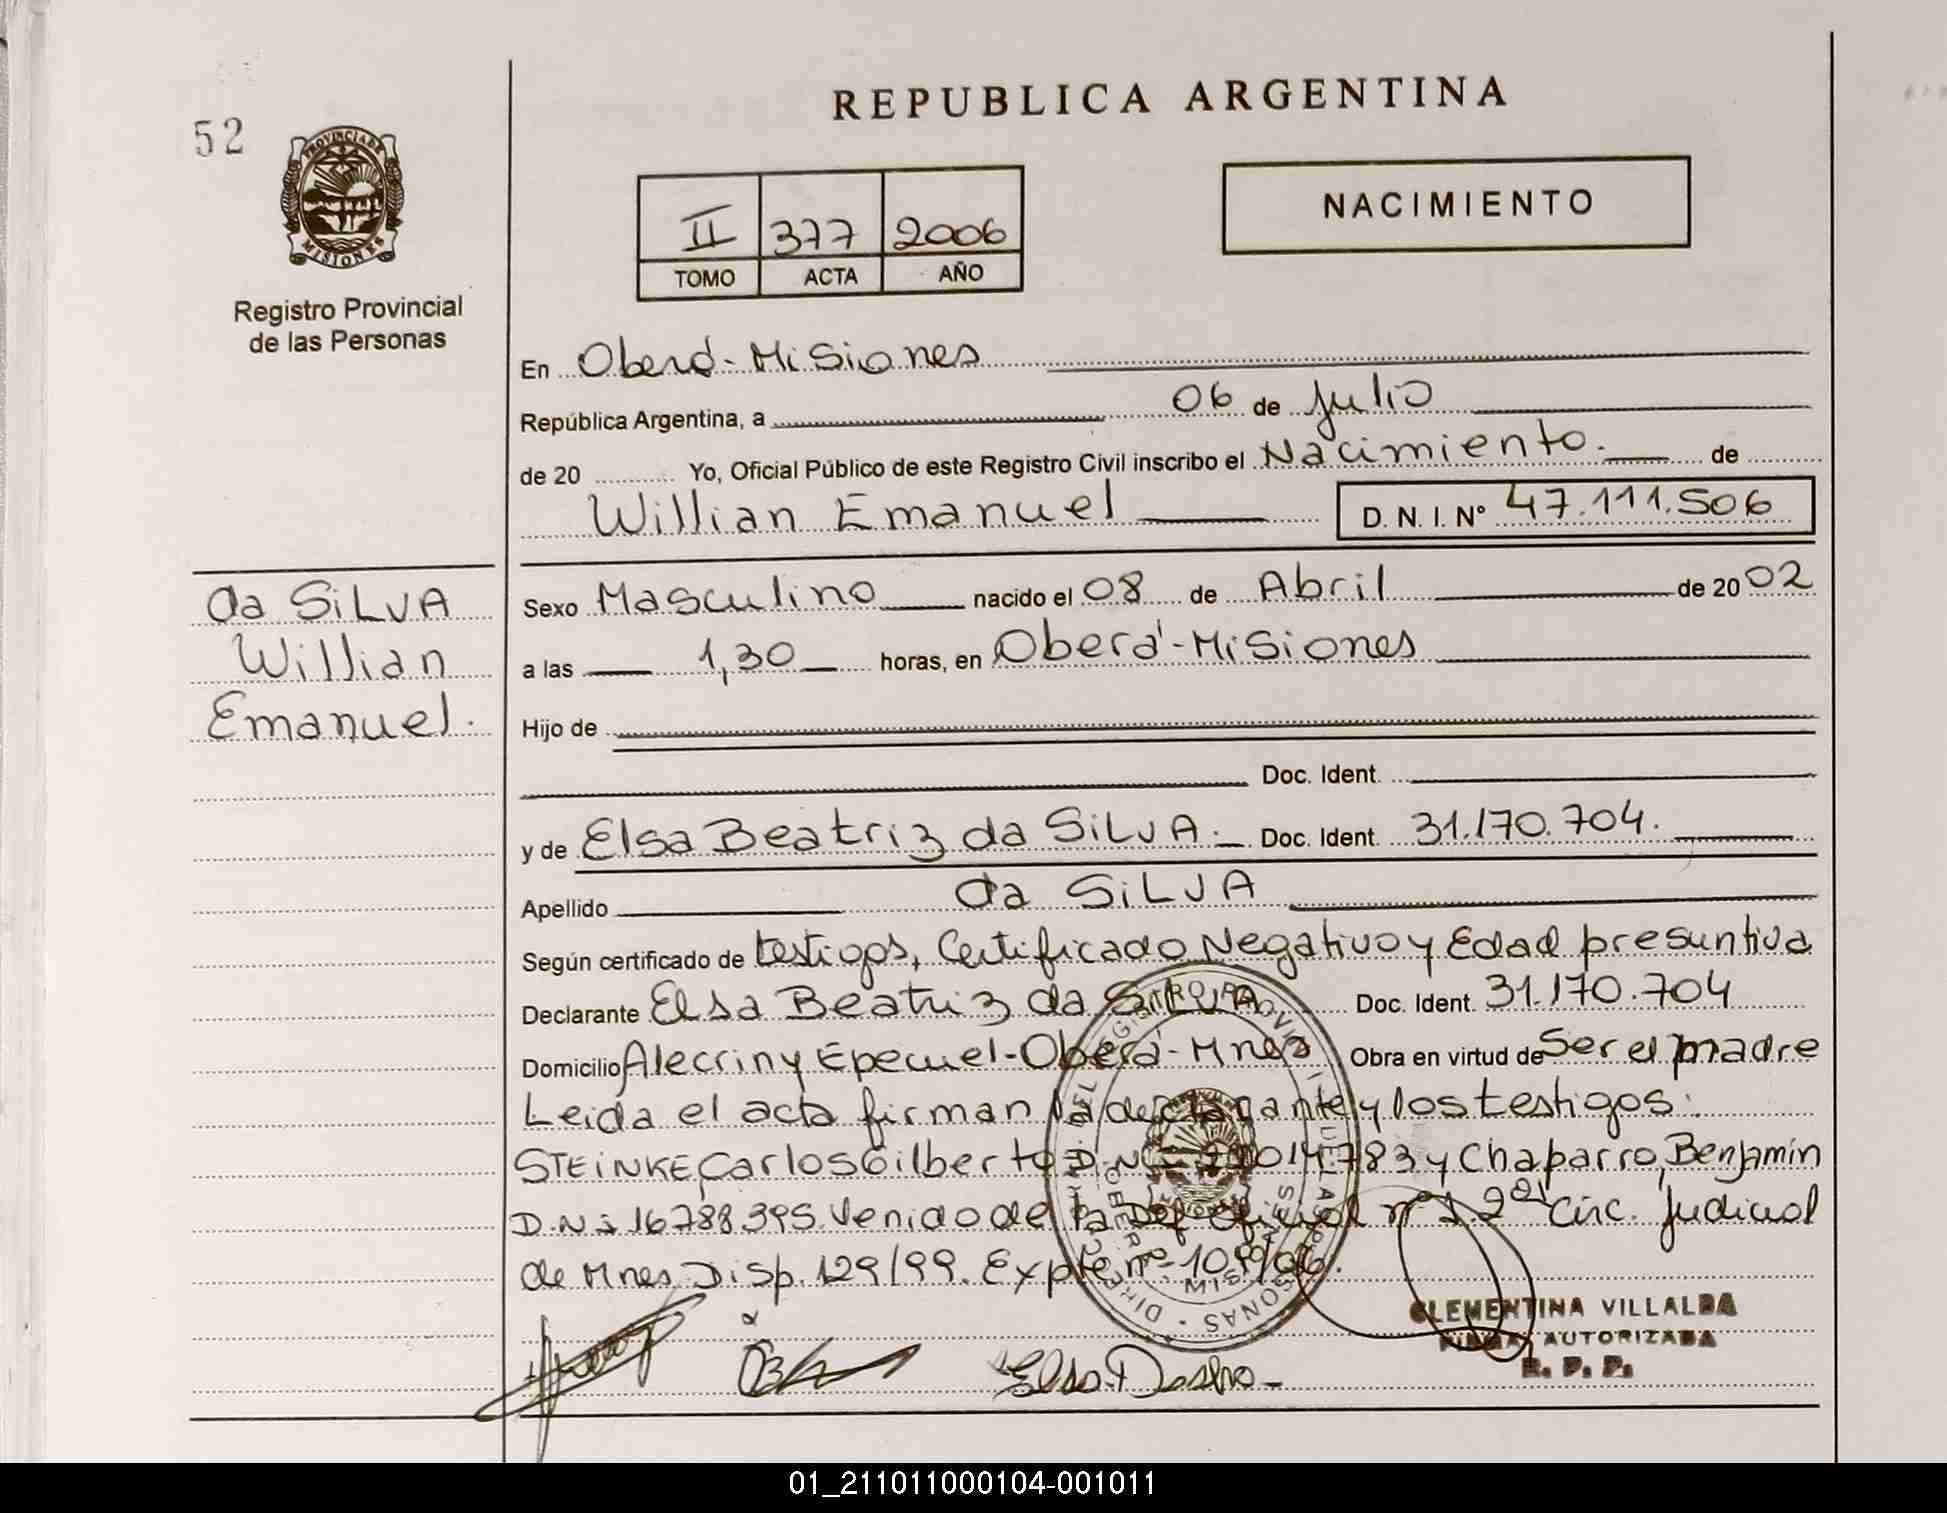 52
PROVINCIA DE
MISIONES
Registro Provincial
de las Personas
REPUBLICA ARGENTINA
II 377 2006
TOMO ACTA AÑO
NACIMIENTO
En Oberá-Misiones
República Argentina, a 06 de Julio
de 20 Yo, Oficial Público de este Registro Civil inscribo el Nacimiento. de
Willian Emanuel D. N. I. Nº 47.111.506
da SiLVA
Willian
Emanuel.
Sexo Masculino nacido el 08 de Abril de 2002
a las 1,30 horas, en Oberá-Misiones
Hijo de
Doc. Ident.
y de Elsa Beatriz da SiLVA. Doc. Ident. 31.170.704.
Apellido da SiLVA
Según certificado de testigos, Certificado Negativo y Edad presuntiva
Declarante Elsa Beatriz da SiLVA Doc. Ident. 31.170.704
Domicilio Alecrin y Epecuel-Oberá-Mnes Obra en virtud de Ser el madre
Leida el acta firman la declarante y los testigos:
STEiNKE, Carlos Gilberto D.N.i. 783 y Chaparro, Benjamín
D.N.i 16.788.395. Venido de la Def Oficial nº 1. 2da Circ. Judicial
de Mnes. Disp. 129/99. Expte nº
CLEMENTINA VILLALBA
FIRMA AUTORIZADA
R. P. P.
01_211011000104-001011